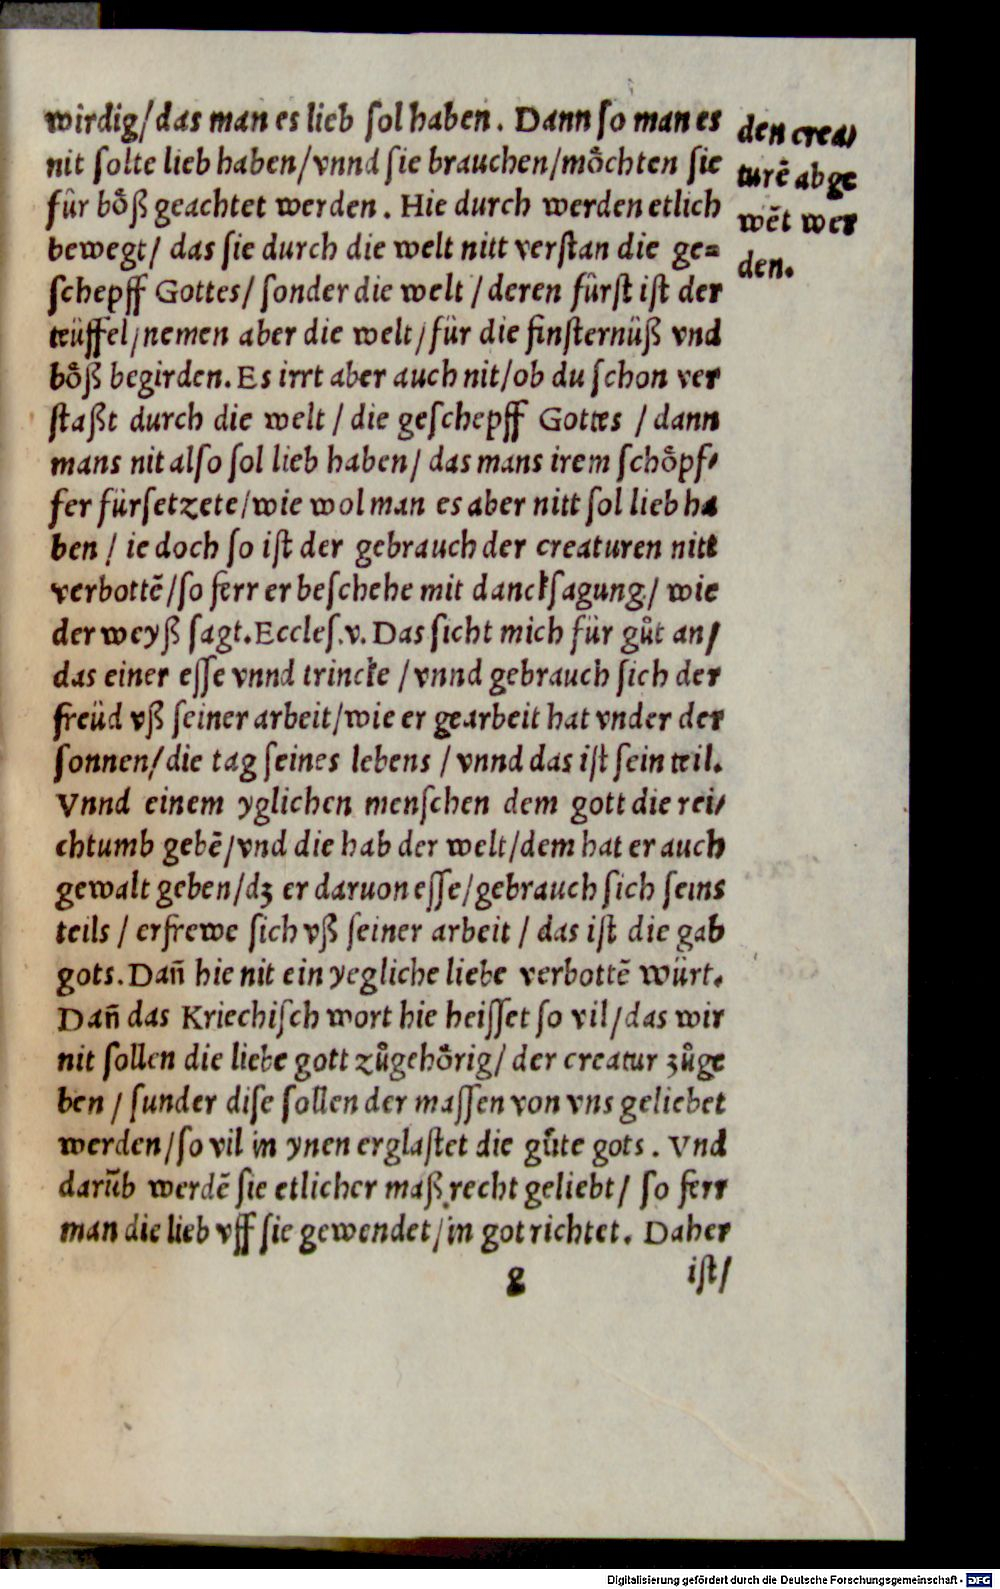 wirdig/das man es lieb ſol haben. Dann ſo man es
nit ſolte lieb haben/vnnd ſie brauchen/moͤchten ſie
fuͤr boͤß geachtet werden. Hie durch werden etlich
bewegt/ das ſie durch die welt nitt verſtan die ge⸗
ſchepff Gottes/ ſonder die welt / deren fuͤrſt iſt der
teüffel/nemen aber die welt/fuͤr die finſternüß vnd
boͤß begirden. Es irrt aber auch nit/ob du ſchon ver
ſtaßt durch die welt / die geſchepff Gottes / dann
mans nit alſo ſol lieb haben/ das mans irem ſchoͤpf⸗
fer fürſetzete/wie wol man es aber nitt ſol lieb ha
ben / ie doch ſo iſt der gebrauch der creaturen nitt
verbottē/ſo ferr er beſchehe mit danckſagung/ wie
der weyß ſagt. Eccleſ. v. Das ſicht mich für guͦt an/
das einer eſſe vnnd trincke / vnnd gebrauch ſich der
freüd vß ſeiner arbeit/wie er gearbeit hat vnder der
ſonnen/die tag ſeines lebens / vnnd das iſt ſein teil.
Vnnd einem yglichen menſchen dem gott die rei⸗
chtumb gebē/vnd die hab der welt/dem hat er auch
gewalt geben/dʒ er daruon eſſe/gebrauch ſich ſeins
teils / erfrewe ſich vß ſeiner arbeit / das iſt die gab
gots. Dan̄ hie nit ein yegliche liebe verbottē würt.
Dan̄ das Kriechiſch wort hie heiſſet ſo vil/das wir
nit ſollen die liebe gott zuͦgehoͤrig/ der creatur zuͦge
ben / ſunder diſe ſollen der maſſen von vns geliebet
werden/ſo vil in ynen erglaſtet die guͤte gots. Vnd
darūb werdē ſie etlicher maß recht geliebt/ ſo ferr
man die lieb vff ſie gewendet/in got richtet. Daher
g iſt/
den crea⸗
turē abge
wēt wer
den.
Digitalisierung gefördert durch die Deutsche Forschungsgemeinschaft - DFG